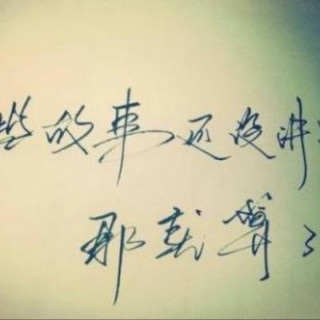 些故事还没讲完
那就算了